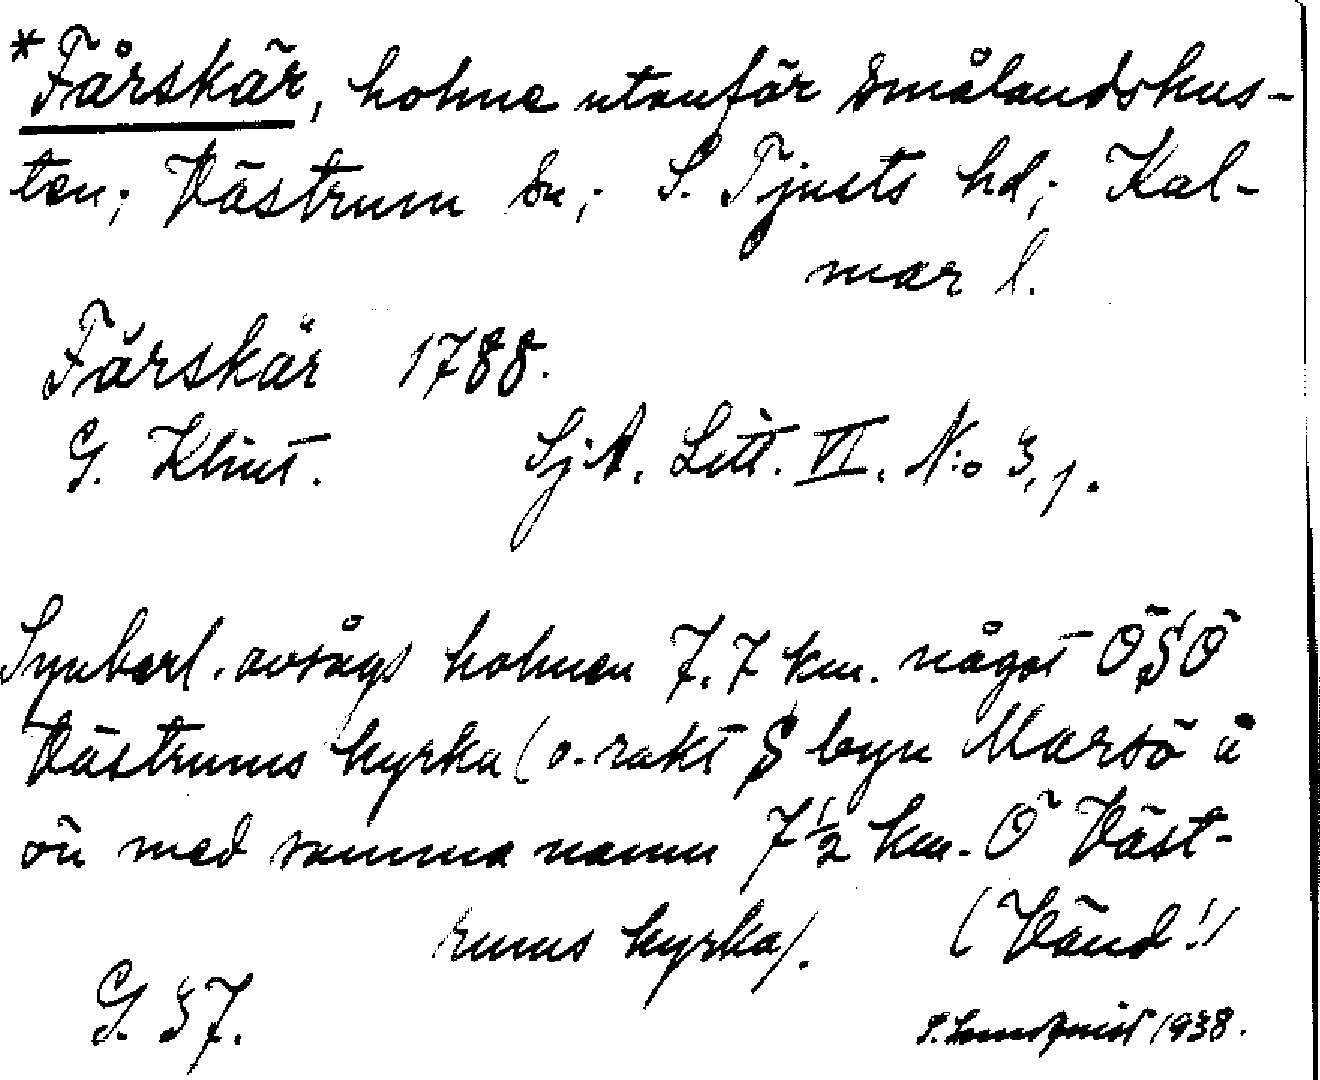 *Fårskär, holme utanför Smålandskus-
ten; Västrum sn; S. Tjusts hd; Kal-
mar l.
Fårskär 1788.
G. Klint. SjA. Litt. VI. N:o 3,1.
Synbarl. avsågs holmen 7,7 km. något ÖSÖ
Västrums kyrka (o. rakt S byn Marsö å
ön med samma namn 7 1/2 km. Ö Väst-
rums kyrka). (Vänd!)
G. 37.
S. Lundquist 1938.